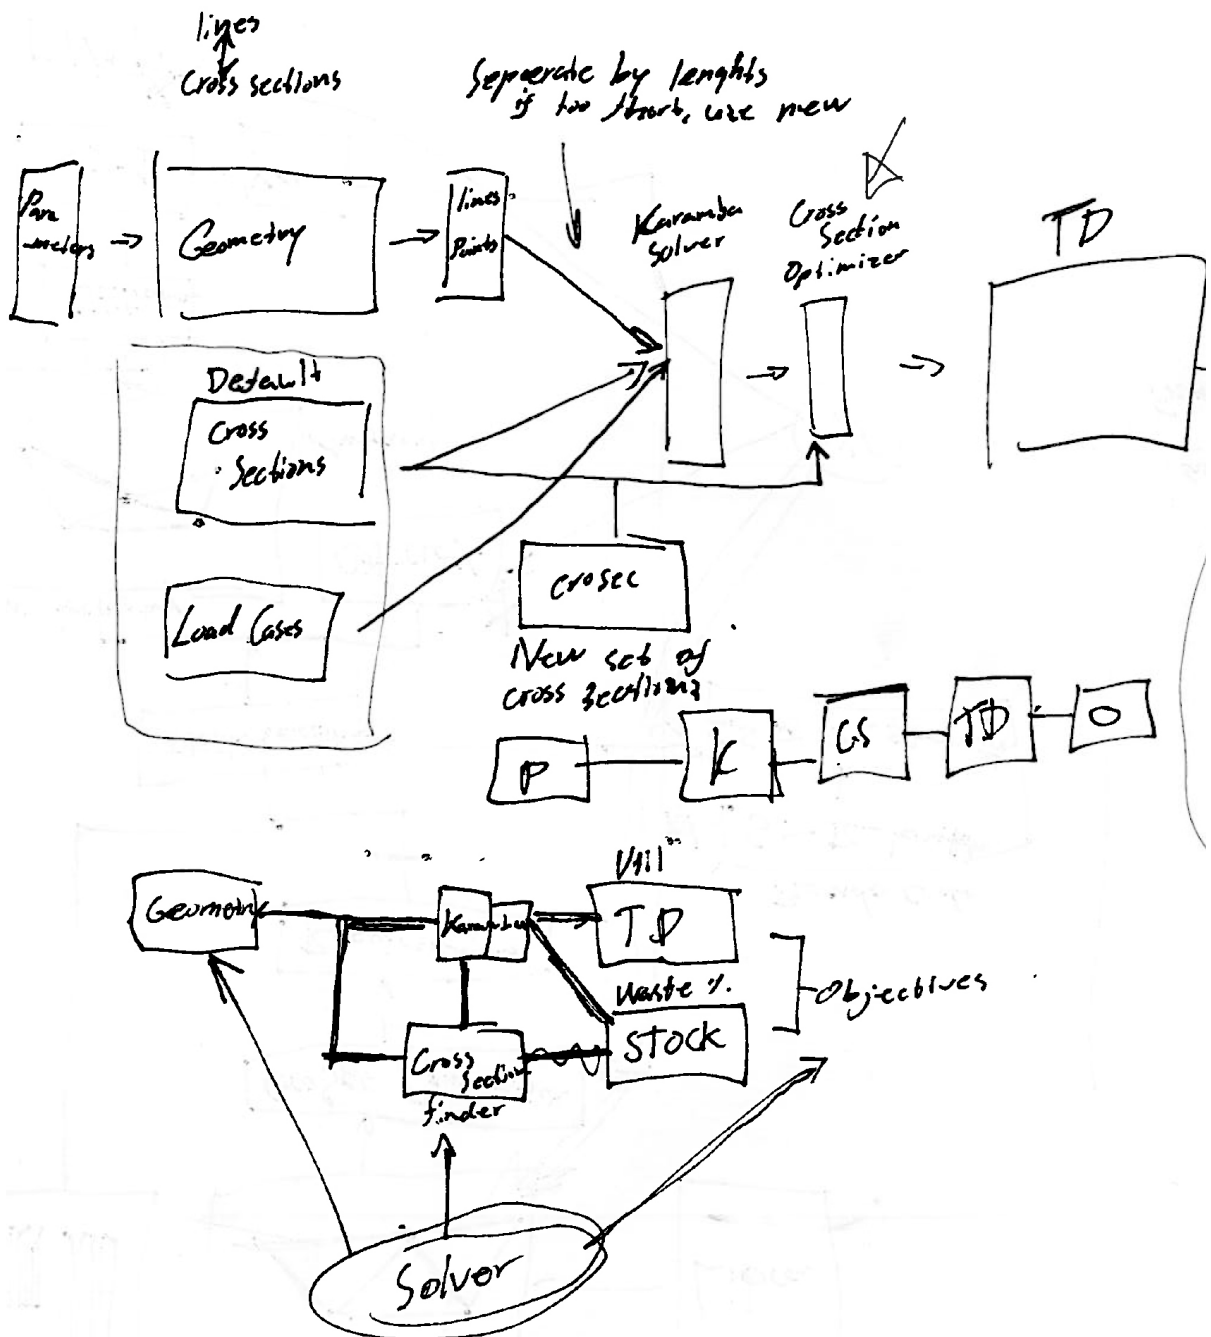 lines
Cross sections
Seperate by lenghts
if too short, use new
Para
-meters
Geometry
lines
Points
Karamba
Solver
Cross
Section
Optimizer
TD
Default
Cross
Sections
Load Cases
crosec
New set of
cross sections
P
K
CS
TD
O
Geometry
Karamba
Util
TD
Waste %
Stock
Objectives
Cross
Section
finder
Solver